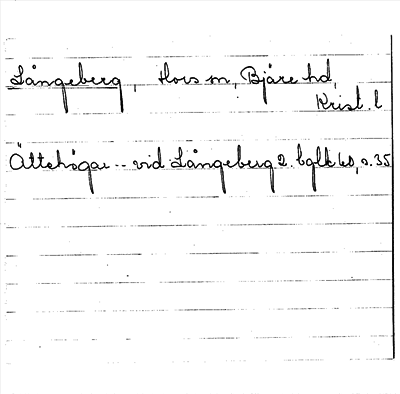 Långeberg, Hovs sn, Bjäre hd,
Krist. l
Ättehögar -- vid Långeberg 2. bglk 40, s. 35